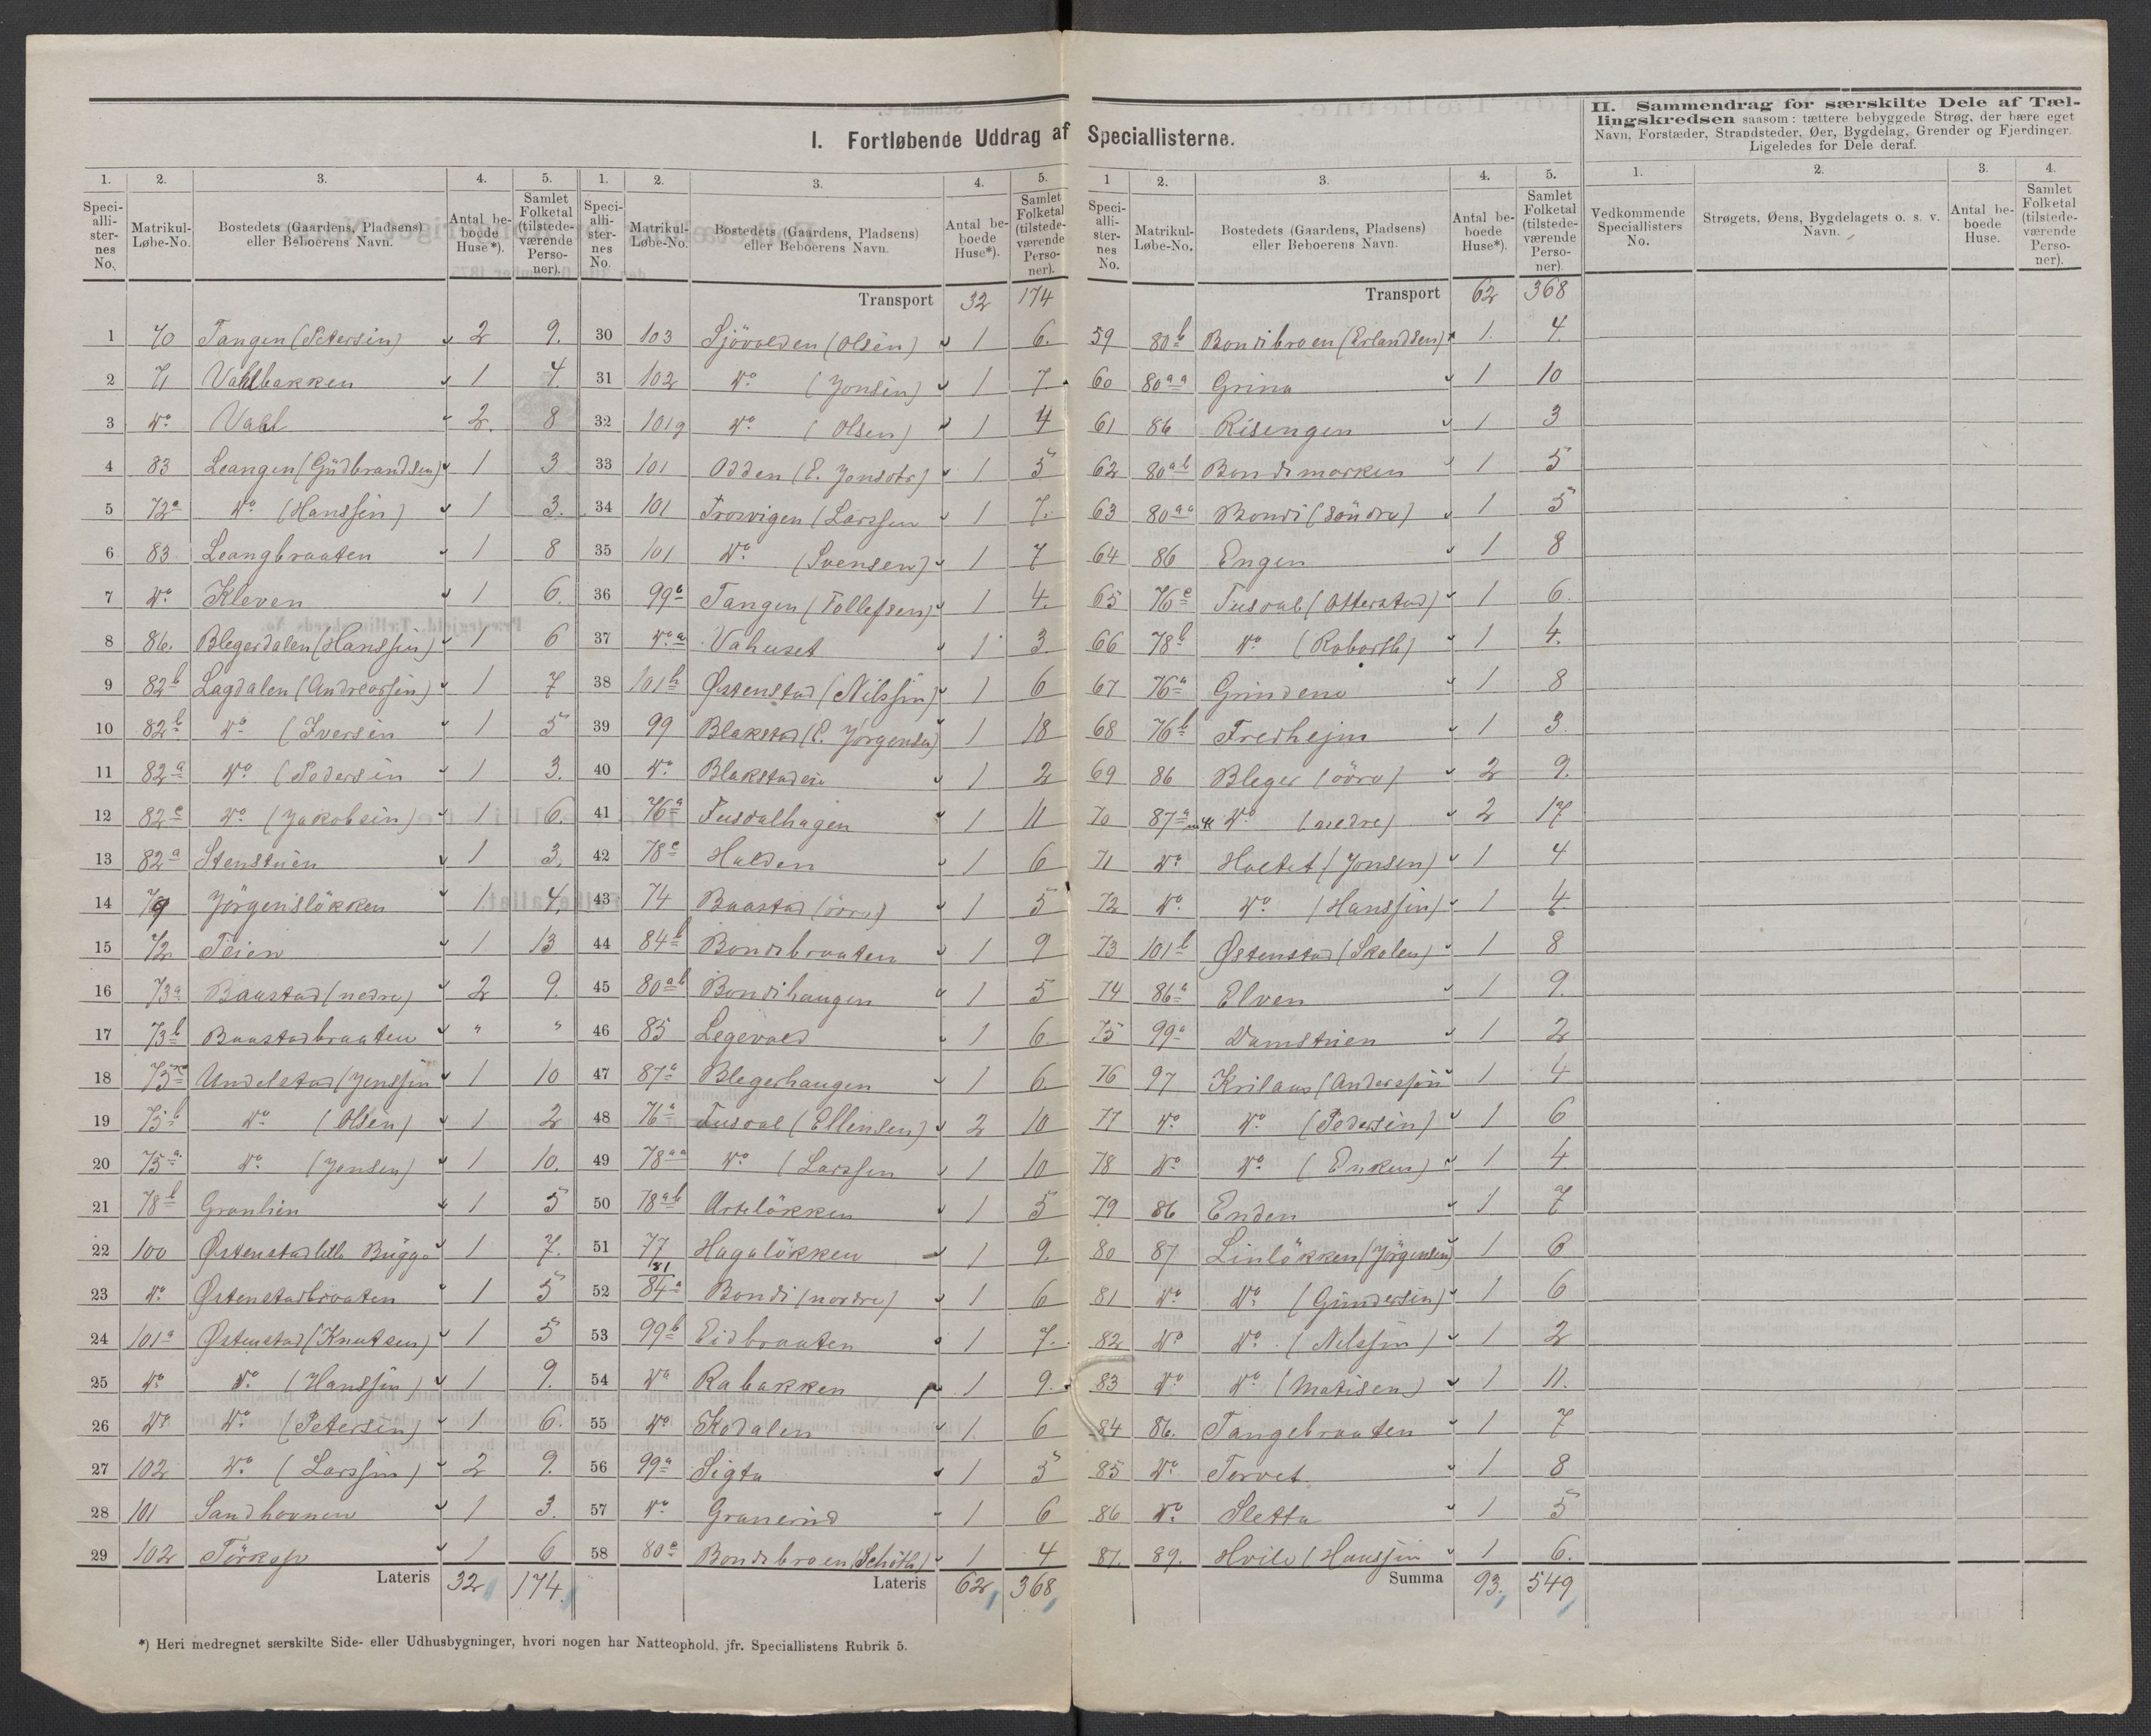 I. Fortløbende Uddrag af Speciallisterne.
II. Sammendrag for særskilte Dele af Tæl-
lingskredsen saasom: tættere bebyggede Strøg, der bære eget
Navn, Forstæder, Strandsteder, Øer, Bygdelag, Grender og Fjerdinger.
Ligeledes for Dele deraf.
1. 2. 3. 4. 5.
Speci-alli-ster-nes No. Matrikul-Løbe-No. Bostedets (Gaardens, Pladsens) eller Beboerens Navn. Antal be-boede Huse*). Samlet Folketal (tilstede-værende Perso-ner).
1 70 Tangen (Petersen) 2 9.
2 71 Vahlbakken 1 4.
3 do Vahl 2. 8
4 83 Leangen (Gudbrandsen) 1 3
5 72a do (Hanssen) 1 3.
6 83 Leangbraaten 1 8
7 do Kleven 1 6.
8 86. Blegerdalen (Hanssen) 1 6
9 82b Lagdalen (Andreassen) 1 7
10 82b do (Iversen 1 5
11 82a do (Pedersen 1 3.
12 82c do (Jakobsen) 1 6.
13 82a Stenstuen 1 3.
14 79 Jörgenslökken 1 4.
15 72 Teien 1 13
16 73a Baastad (nedre) 2 9.
17 73b Baastadbraaten " "
18 75c Undelstad (Jenssen 1 10
19 75b do (Olsen) 1 2
20 75a do (Jonsen) 1 10.
21 78b Granlien 1 5
22 100 Østenstad lille Bugge 1 7.
23 do Østenstadbraaten 1 5
24 101a Østenstad (Knutsen) 1 5
25 do do (Hanssen) 1 9.
26 do do (Petersen) 1 6.
27 102 do (Larssen) 2 9.
28 101 Sandhovnen 1 3.
29 102 Törkop 1 6
Lateris 32 174.
1. 2. 3. 4. 5.
Speci-alli-ster-nes No. Matrikul-Løbe-No. Bostedets (Gaardens, Pladsens) eller Beboerens Navn. Antal be-boede Huse*). Samlet Folketal (tilstede-værende Perso-ner).
Transport 32 174
30 103 Sjövolden (Olsen) 1 6.
31 102 do (Jonsen) 1 7.
32 101g do (Olsen) 1 4
33 101 Odden (E. Jonsdtr) 1 5
34 101 Trosvigen (Larssen 1 7.
35 101 do (Svensen) 1 7
36 99b Tangen (Tollefsen) 1 4.
37 do a Vahuset 1 3
38 101h Østenstad (Nilssen) 1 6
39 99 Blakstad (E. Jörgensen) 1 18
40 do Blakstadeie 1 2
41 76a Fusdalhagen 1 11
42 78c Halden 1 6
43 74 Baastad (övre) 1 5
44 84b Bondibraaten 1 9
45 80ab Bondihaugen 1 5
46 85 Legevold 1 6
47 87a Blegerhaugen 1 6
48 76a Fusdal (Ellensen) 2 10
49 78aa do (Larssen 1 10
50 78ab Arslökken 1 5
51 77 Hagalökken 1 9.
52 81 84a Bondi (nordre) 1 6
53 99b Eidbraaten 1 7.
54 do Rabakken 1 9.
55 do Ekodalen 1 6
56 99a Sigta 1 5
57 do Granerud 1 6
58 80c Bondibroen (Schöth) 1 4
Lateris 62 368
1 2. 3. 4. 5.
Speci-alli-ster-nes No. Matrikul-Løbe-No. Bostedets (Gaardens, Pladsens) eller Beboerens Navn. Antal be-boede Huse*). Samlet Folketal (tilstede-værende Perso-ner).
Transport 62 368
59 80b Bondibroen (Erlandsen) 1. 4.
60 80aa Grina 1 10
61 86 Risengen 1 3
62 80ab Bondimarken 1 5
63 80aa Bondi (söndre) 1 5
64 86 Engen 1 8
65 76c Fusdal (Otterstad) 1 6
66 78b do 1 4.
67 76a Grindene 1 8
68 76b Fredhejm 1 3
69 86 Bleger (övre) 2 9.
70 87a do (nedre) 2 17
71 do Holtet (Jonsen) 1 4
72 do do (Hanssen) 1 4
73 101b Østenstad (Skolen) 1 8
74 86a Elven 1 9.
75 99a Damstuen 1 2
76 97 Krilaas (Anderssen 1 4
77 do do (Pedersen) 1 6
78 do do (Enken) 1 4.
79 86 Enden 1 7
80 87 Linlökken (Jörgensen) 1 6
81 do do (Gundersen) 1 6
82 do do (Nilssen) 1 2
83 do do (Matisen) 1 11.
84 86. Tangebraaten 1 7
85 do Torvet 1 8
86 do Sletta 1 5
87. 89. Hvile (Hanssen 1 6.
Summa 93. 549
1. 2. 3. 4.
Vedkommende Speciallisters No. Strøgets, Øens, Bygdelagets o. s. v. Navn. Antal be-boede Huse. Samlet Folketal (tilstede-værende Perso-ner).
*) Heri medregnet særskilte Side- eller Udhusbygninger, hvori nogen har Natteophold, jfr. Speciallistens Rubrik 5.